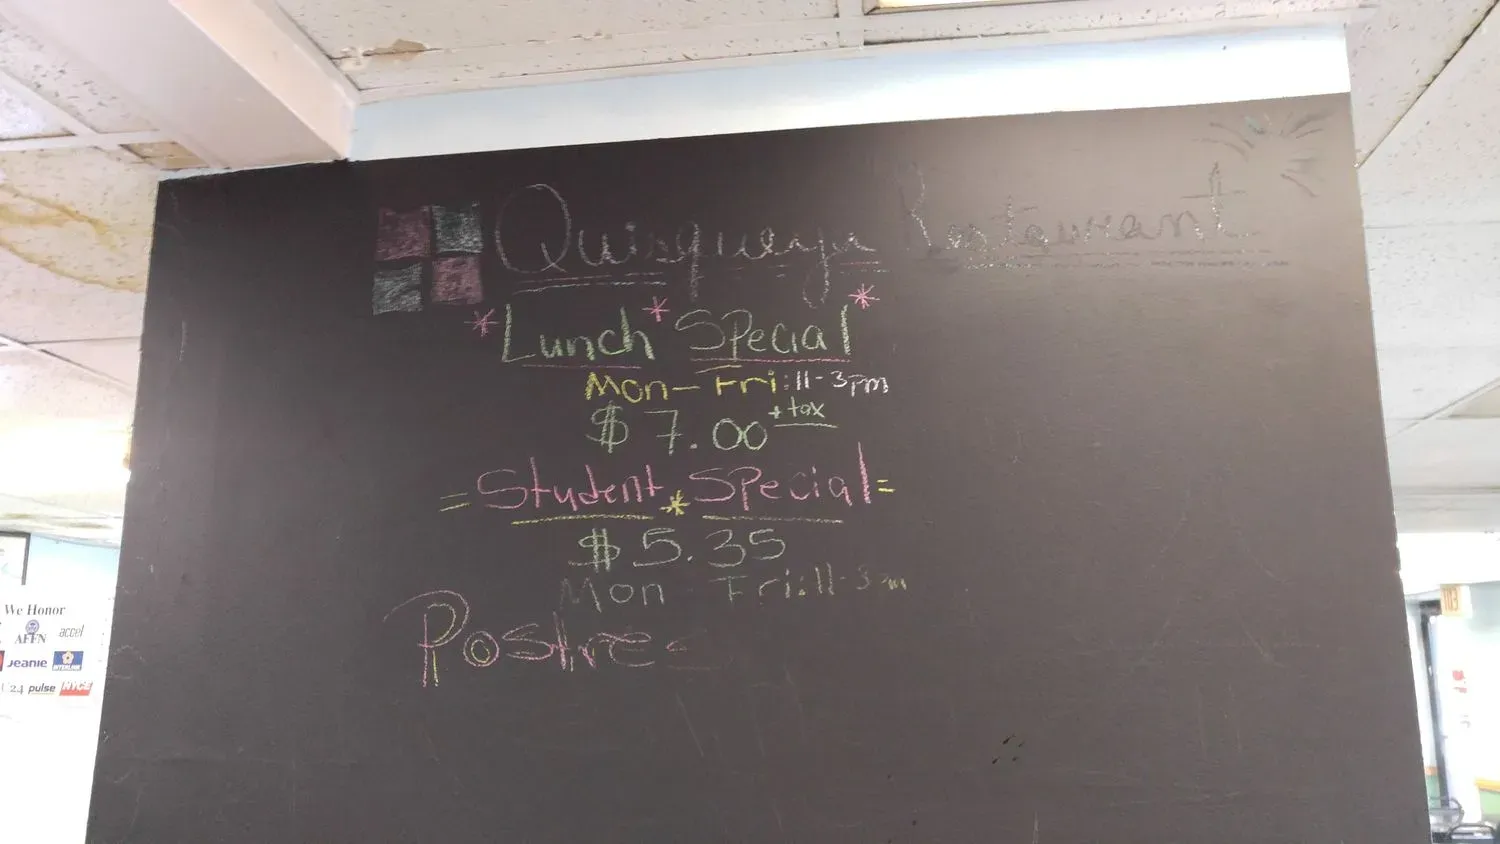 Quisqueya Restaurant
*Lunch* Special*
Mon-Fri:11-3pm
$7.00 +tax
=Student * Special=
$5.35
Mon-Fri:11-3pm
Postres
We Honor
AFFN accel
Jeanie INTERLINK
24 pulse NYCE
1113